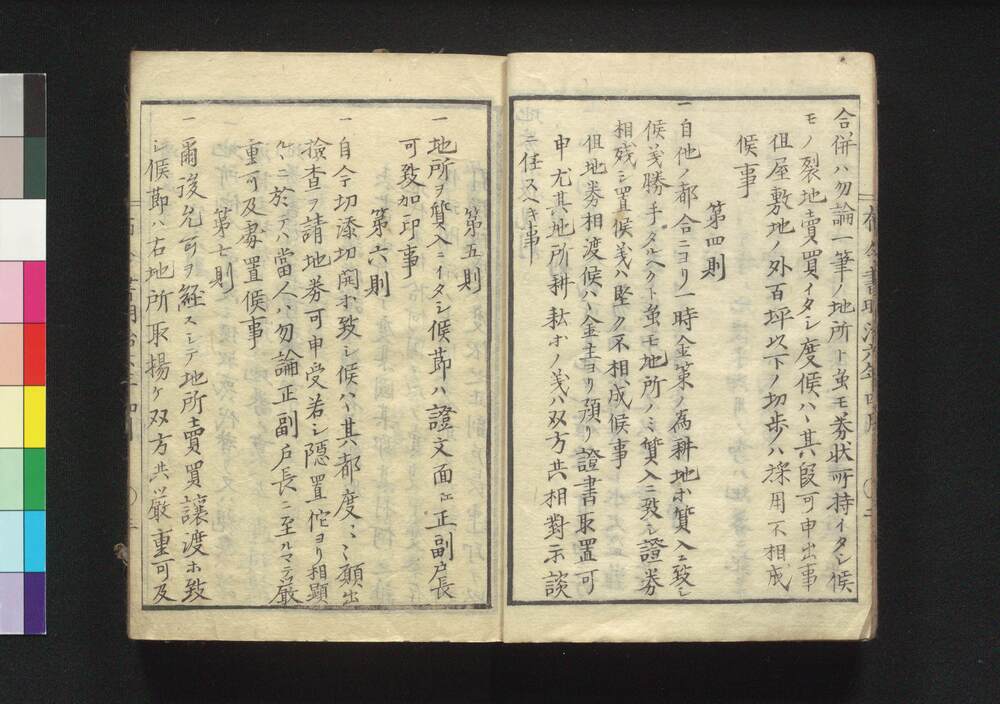 合併ハ勿論一筆ノ地所ト虽モ券状所持イタシ候
モノ裂地賣買イタシ度候ハヽ其段可申出事
但屋敷地ノ外百坪以下ノ切歩ハ採用不相成
候事
第四則
一自他ノ都合ニヨリ一時金策ノ為耕地ホ質入ニ致シ
候義勝手タルヘクト虽モ地所ノミ質入ニ致シ證券
相残シ置候義ハ堅ク不相成候事
但地券相渡候ハヽ金主ヨリ預リ證書取置可
申尤其地所耕耘ホノ義ハ双方共相對示談
ニ任スヘキ事
第五則
一地所ヲ質入ニイタシ候節ハ證文面江正副戸長
可致加印事
第六則
一自今切添切開ホ致シ候ハヽ其都度〻〻願出
撿查ヲ請地券可申受若シ隠置佗ヨリ相顕
候ニ於テハ當人ハ勿論正副戸長ニ至ルマテ厳
重可及處置候事
第七則
一爾後允可ヲ経スシテ地所賣買譲渡ホ致
シ候節ハ右地所取揚ケ双方共厳重可及